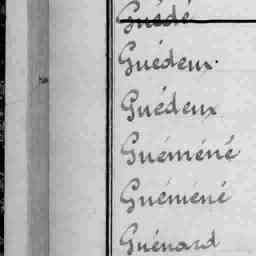 Guédé
Guédeux.
Guédeux
Guéméné
Guéméné
Guénard